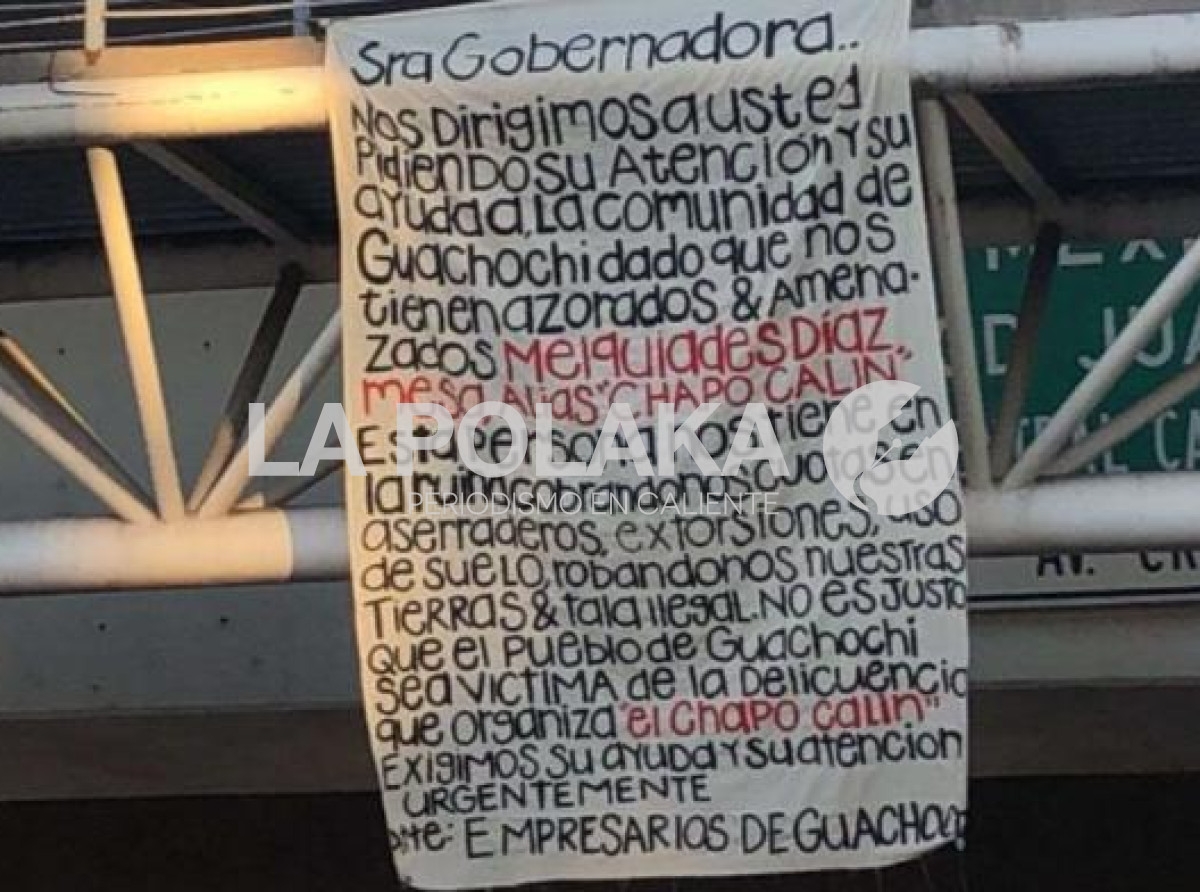 Sra Gobernadora..
Nos Dirigimos a usted
PidienDo su Atención Y su
ayuda a La comunidad de
Guachochi dado que nos
tienen azorados & Amena-
zados Melquiades Díaz
mesa, Alias "CHAPO CALIN"
Esta Persona nos tiene en
la ruina cobrandonos cuotas en
aserraderos, extorsiones, uso
de sueLo, robandonos nuestras
TIERRAS & tala ilegal. NO es JUSTO
que el Pueblo de Guachochi
sea VICTIMA de la Delicuencia
que organiza "el CHAPO CALIN"
EXIGIMOS su ayuda Y su atencion
URGENTEMENTE
EMPRESARIOS DE GUACHO
LA POLAKA
PERIODISMO EN CALIENTE
JU
AV.